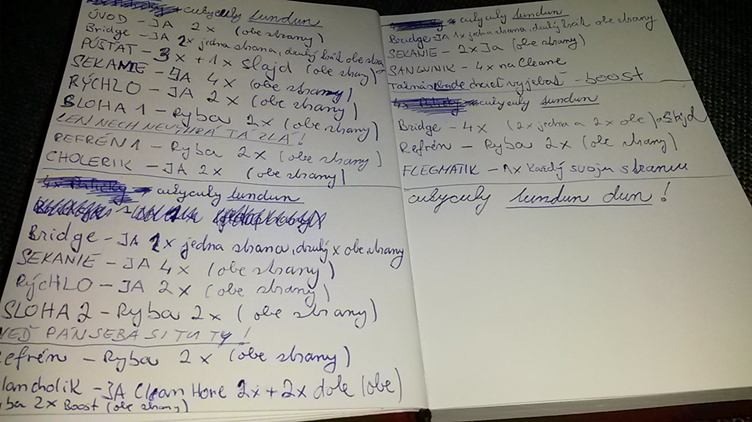 culyculy tundun
ÚVOD - JA 2x (obe strany)
Bridge - JA 2x jedna strana, druhý krát obe
PÚŠŤAŤ - 3x + 1x slajd (obe strany)
SEKANIE - JA 4x (obe strany)
RÝCHLO - JA 2x (obe strany)
SLOHA 1 - Ryba 2x (obe strany)
LEN NECH NEVYHRÁ TÁ ZLÁ!
REFRÉN 1 - Ryba 2x (obe strany)
CHOLERIK - JA 2x (obe strany)
culyculy tundun
Bridge - JA 1x jedna strana, druhý x obe strany
SEKANIE - JA 4x (obe strany)
RÝCHLO - JA 2x (obe strany)
SLOHA 2 - Ryba 2x (obe strany)
VEĎ PÁN SEBA SI TU TY!
Refrén - Ryba 2x (obe strany)
lancholik - JA Clean Hore 2x + 2x dole (obe)
yba 2x Boost (obe strany)
culyculy tundun
Bridge - JA 1x jedna strana, druhý krát obe strany
SEKANIE - 2x JA (obe strany)
SANGVINIK - 4x na Cleane
chcieť vyjebať - boost
culyculy tundun
Bridge - 4x (2x jedna a 2x obe) a slajd
Refrén - Ryba 2x (obe strany)
FLEGMATIK - 1x každý svoju stranu
culyculy tundun dun!